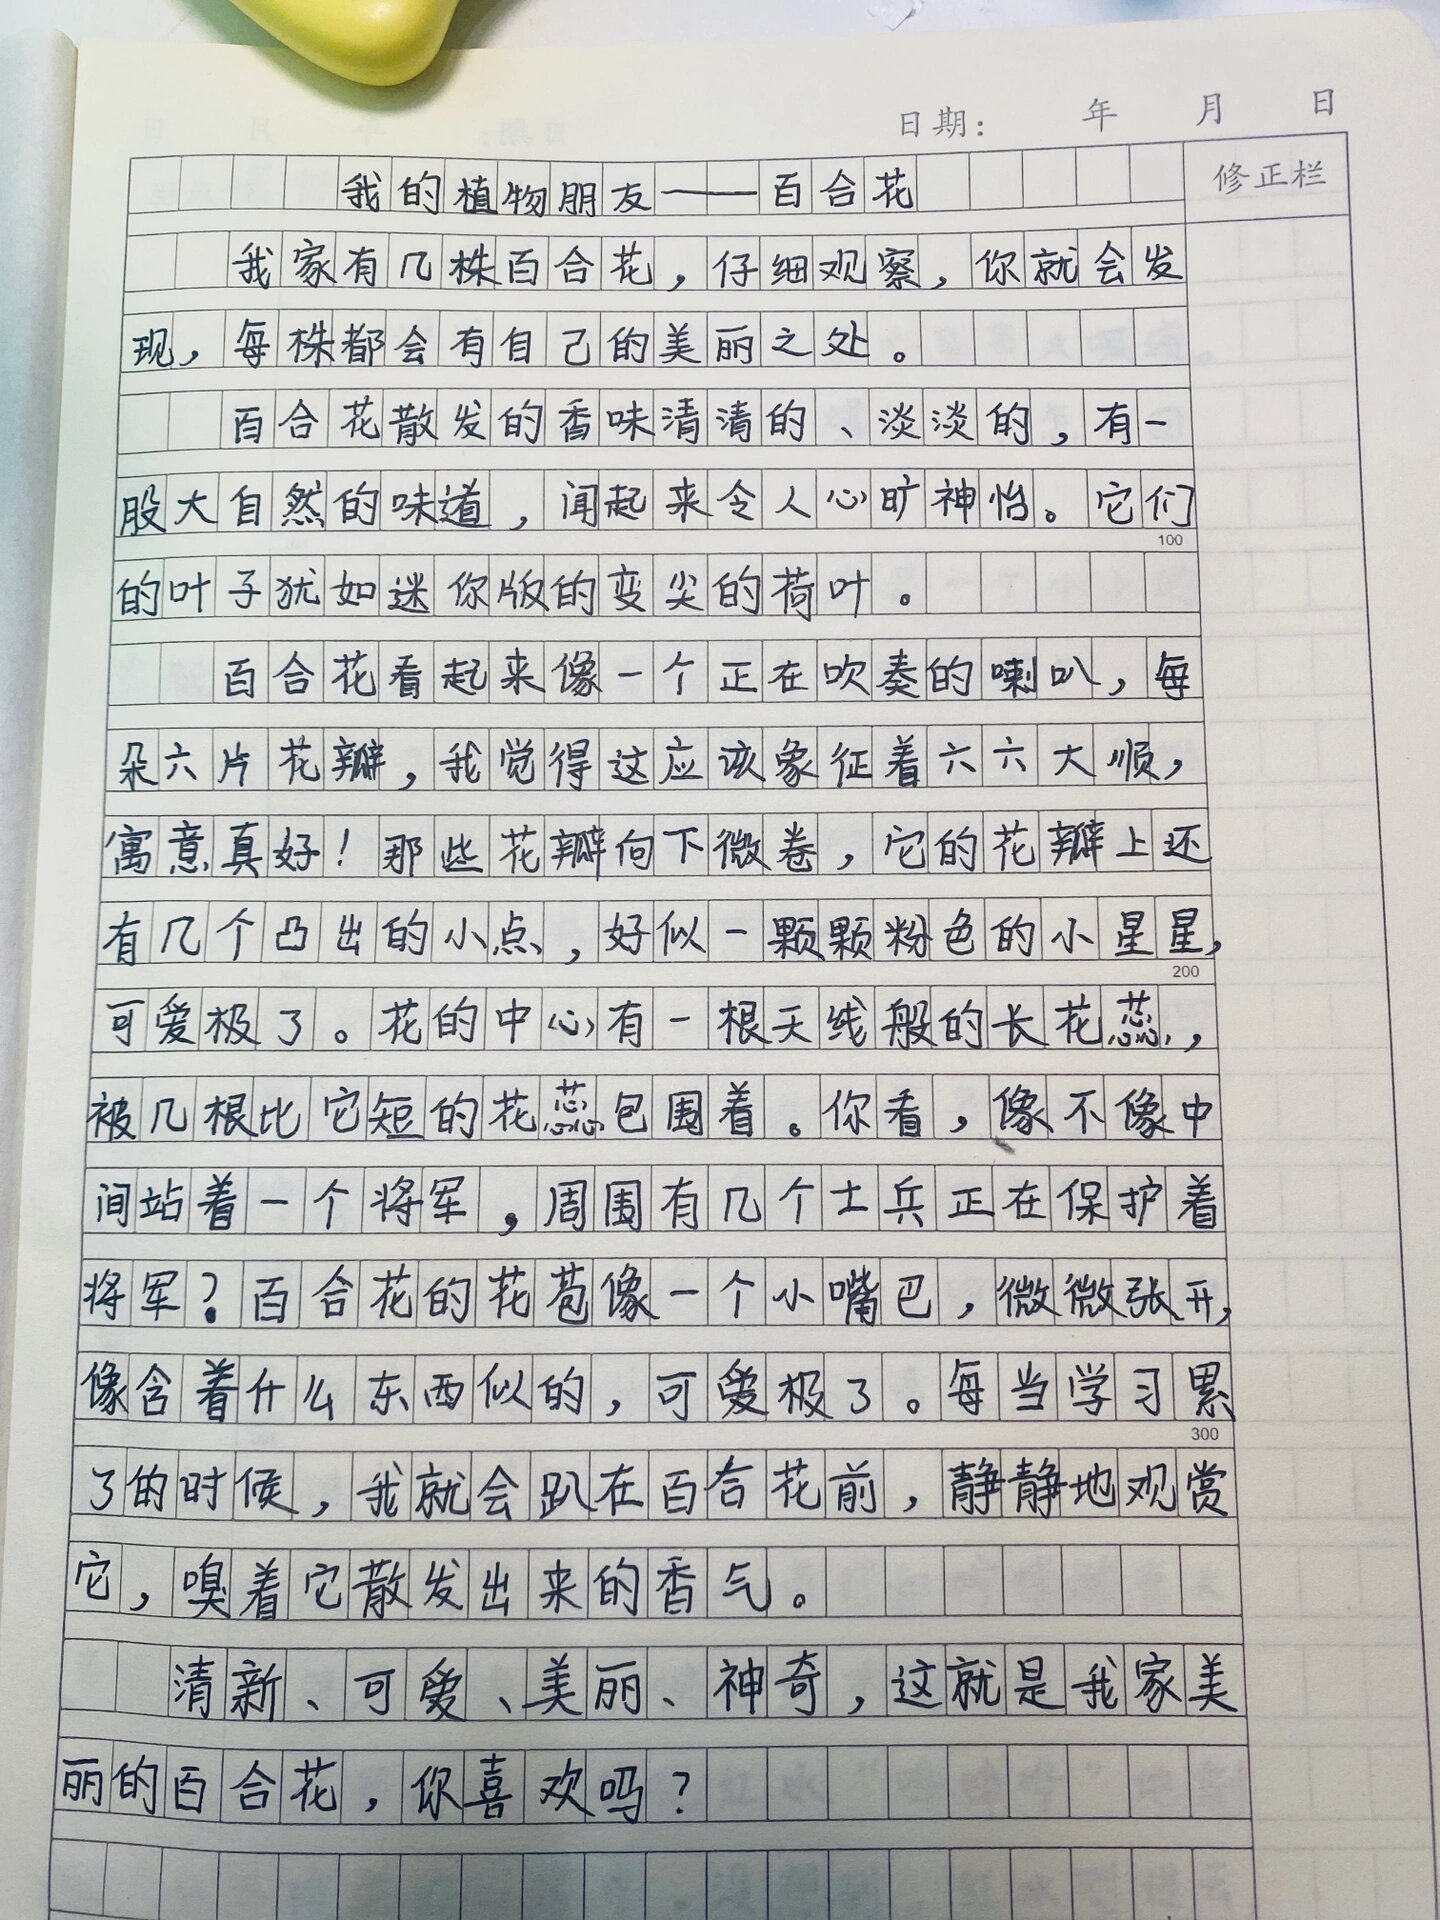 日期： 年 月 日
修正栏
我的植物朋友——百合花
我家有几株百合花，仔细观察，你就会发
现，每株都会有自己的美丽之处。
百合花散发的香味清清的、淡淡的，有一
股大自然的味道，闻起来令人心旷神怡。它们
100
的叶子犹如迷你版的变尖的荷叶。
百合花看起来像一个正在吹奏的喇叭，每
朵六片花瓣，我觉得这应该象征着六六大顺，
寓意真好！那些花瓣向下微卷，它的花瓣上还
有几个凸出的小点，好似一颗颗粉色的小星星，
200
可爱极了。花的中心有一根天线般的长花蕊，
被几根比它短的花蕊包围着。你看，像不像中
间站着一个将军，周围有几个士兵正在保护着
将军？百合花的花苞像一个小嘴巴，微微张开，
像含着什么东西似的，可爱极了。每当学习累
300
了的时候，我就会趴在百合花前，静静地观赏
它，嗅着它散发出来的香气。
清新、可爱、美丽、神奇，这就是我家美
丽的百合花，你喜欢吗？